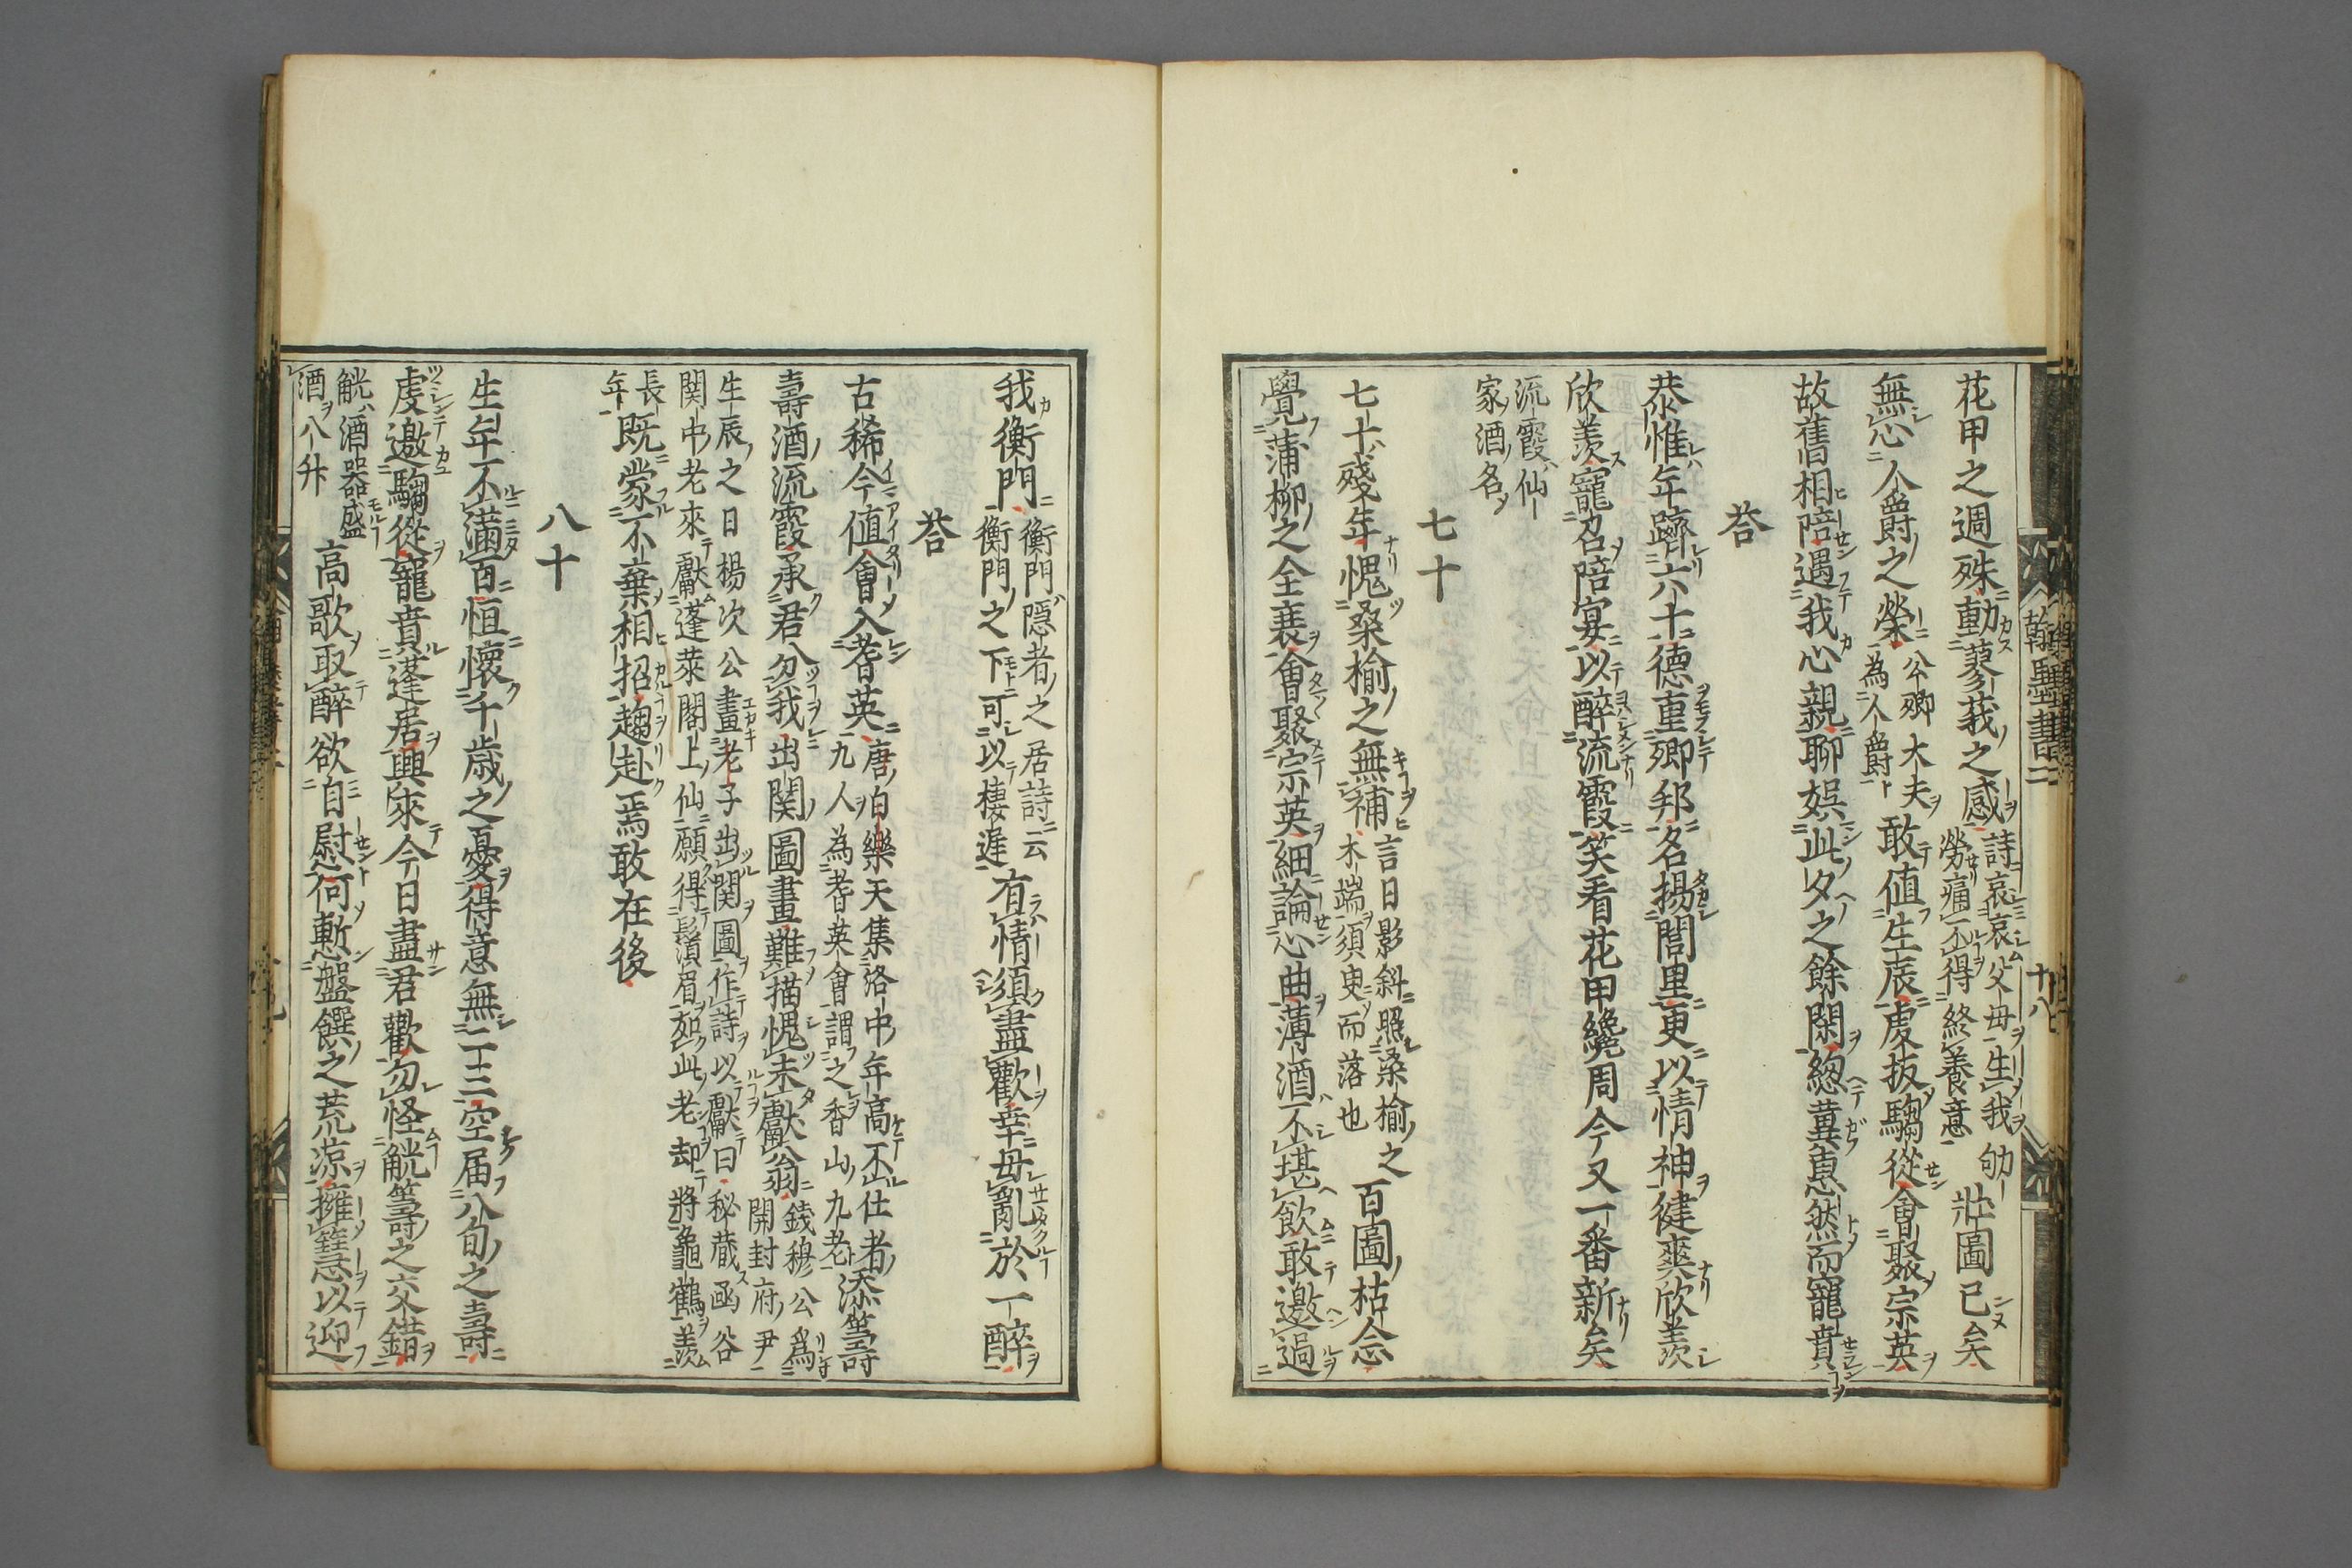 花甲之週殊動蓼莪之感詩哀哀父母生我劬勞痛不得終養意壯圖已矣
無心人爵之榮公卿大夫為人爵敢値生辰虔扳騶從會聚宗英
故舊相陪遇我心親聊娯此夕之餘閑緫冀惠然而寵賁
荅
恭惟年躋六十德重郷邦名揚閭里更以情神健爽欣羨
欣羨寵召陪宴以醉流霞笑看花甲纔周今又一番新矣
流霞仙家酒名
七十
七十殘年愧桑榆之無補言日影斜照桑榆之木端須臾而落也百圖枯念
覺蒲柳之全衰會聚宗英細論心曲薄酒不堪飲敢邀過
翰墨書二
十八
我衡門衡門隱者之居詩云衡門之下可以棲遲有情須盡歡幸毋亂於一醉
荅
古稀今値會入耆英唐白樂天集洛中年高不仕者九人為耆英會謂之香山九老添筭壽
壽酒流霞承君分我出関圖畫難描愧未獻公翁錢穆公爲開封府尹
生辰之日楊次公畫老子出関圖作詩以獻曰秘藏函谷
関中老來獻蓬萊閣上仙願得鬚眉如此老却將龜鶴羨
長年既蒙不棄相招趨赴焉敢在後
八十
生年不滿百恒懷千歳之憂得意無二三空届八旬之壽
虔邀騶從寵賁蓬居興來今日盡君歡勿怪觥籌之交錯
觥酒器盛酒八升高歌取醉欲自慰何慙盤饌之荒凉擁篲以迎